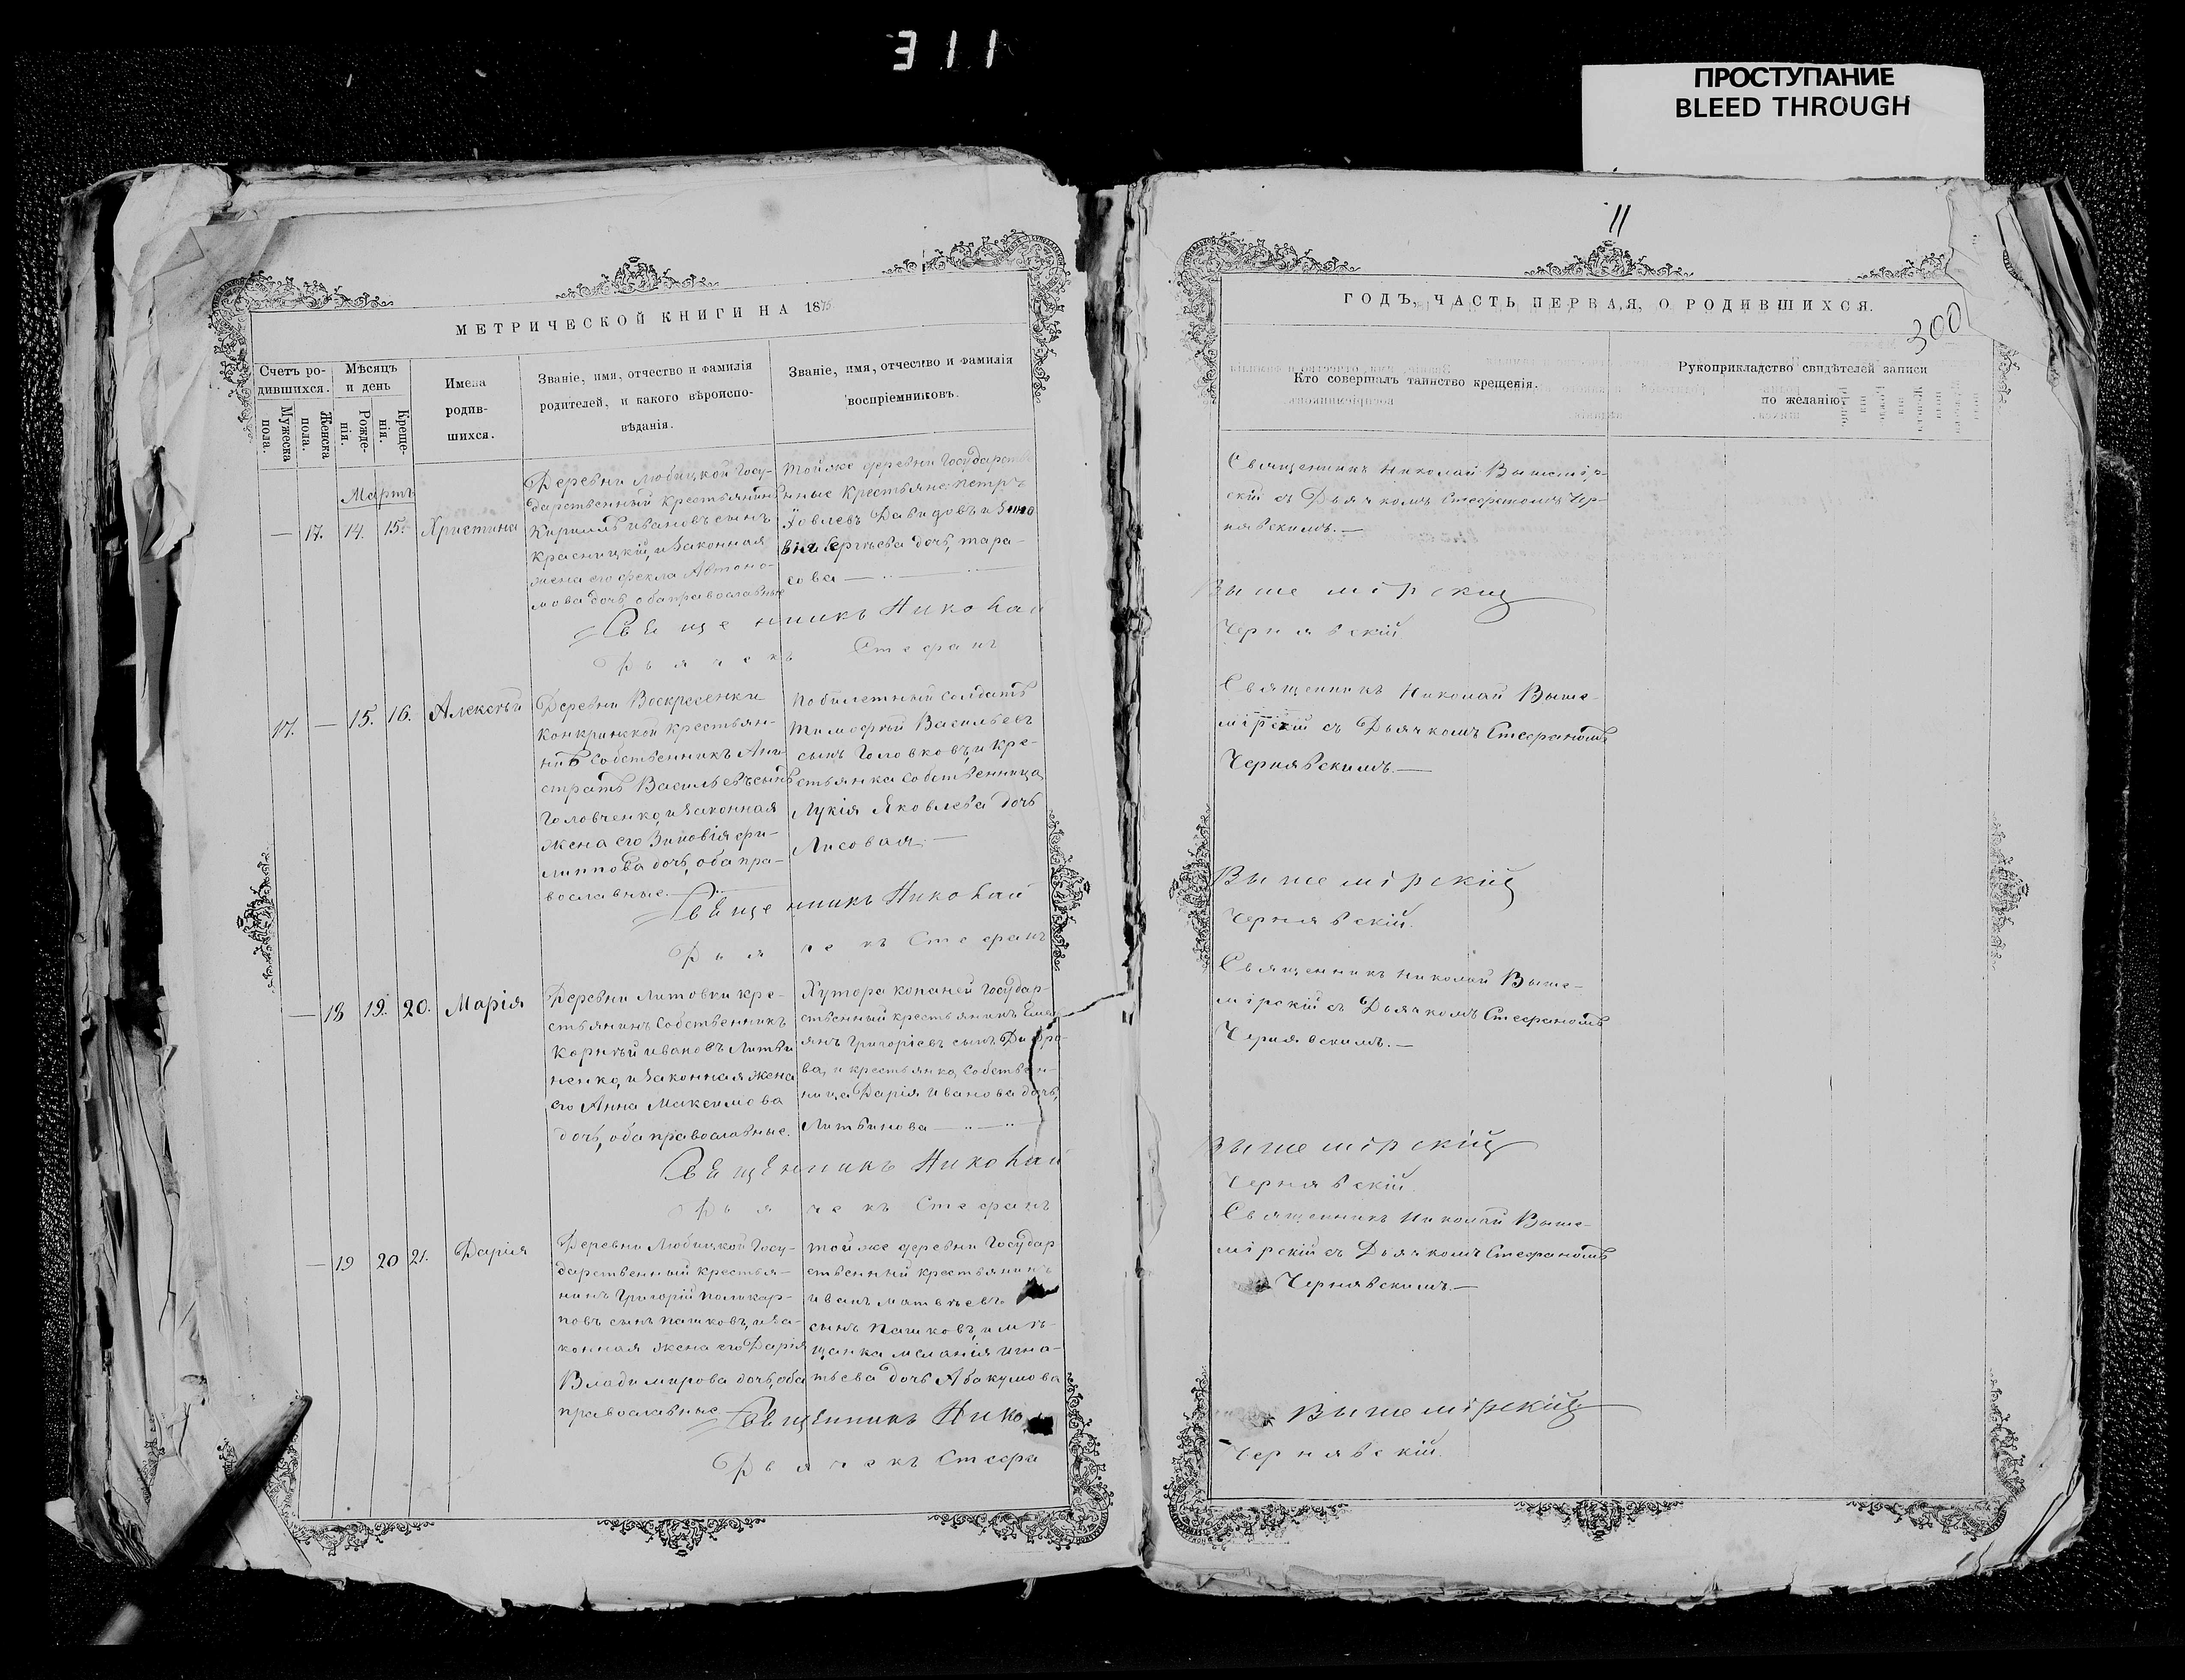 311
ПРОСТУПАНИЕ
BLEED THROUGH
МЕТРИЧЕСКОЙ КНИГИ НА 1875
Счетъ ро-
дившихся.
Мужеска
пола.
Женска
пола.
Мѣсяцъ
и день
Рожде-
нія.
Креще-
нія.
Имена
родив-
шихся.
Званіе, имя, отчество и фамилія
родителей, и какого вѣроиспо-
вѣданія.
Званіе, имя, отчество и фамилія
воспріемниковъ.
Мартъ
— 17. 14. 15. Христина
Деревни Любицкой Госу-
дарственный крестьянинъ
Кириллъ Ивановъ сынъ
Красницкій, и законная
жена его Фекла Автоно-
мова дочь, оба православные
Той же деревни Государст
нные крестьяне: Петръ
Іовлевъ Давидовъ и Зино
вія Сергѣева дочь, Тара-
сова —
Священникъ Николай
Дьячекъ Стефанъ
17. — 15. 16. Алексѣй
Деревни Воскресенки
Конкринской крестьян-
нинъ Собственникъ Ани-
стратъ Васильевъ сынъ
Головченко, и законная
жена его Зиновія Фи-
липпова дочь, оба пра-
вославные.
Побилетный солдатъ
Тимофѣй Васильевъ
сынъ Головковъ, и кре-
стьянка собственница
Лукія Яковлева дочь
Лисовая. —
Священникъ Николай
Дьячекъ Стефанъ
— 18 19. 20. Марія
Деревни Литовки кре-
стьянинъ Собственникъ
Корнѣй Ивановъ Литви
ненко, и законная жена
его Анна Максимова
дочь, оба православные.
Хутора Копаней Государ-
ственный крестьянинъ Емел
янъ Григорьевъ сынъ
ва, и крестьянка, Собствен-
ница Дарія Иванова дочь,
Литвинова —
Священникъ Николай
Дьячекъ Стефанъ
— 19 20 21. Дарія
Деревни Любицкой Госу-
дарственный крестья-
нинъ Григорій Поликар-
повъ сынъ Пашковъ, и за-
конная жена его Дарія
Владимирова дочь, оба
православные
Той же деревни Государ
ственный крестьянинъ
Иванъ Матвѣевъ
сынъ Пашковъ, и мѣ-
щанка Меланія Игна-
тьева дочь Абакумова
Священникъ Нико
Дьячекъ Стефа
11
300
ГОДЪ, ЧАСТЬ ПЕРВАЯ, О РОДИВШИХСЯ.
Кто совершалъ таинство крещенія.
Рукоприкладство свидѣтелей записи
по желанію.
Священникъ Николай Вышемір-
скій съ Дьячкомъ Стефаномъ Чер-
нявскимъ. —
Вышемірскій
Чернявскій
Священникъ Николай Выше-
мірскій съ Дьячкомъ Стефаномъ
Чернявскимъ. —
Вышемірскій
Чернявскій.
Священникъ Николай Выше-
мірскій съ Дьячкомъ Стефаномъ
Чернявскимъ. —
Вышемірскій
Чернявскій.
Священникъ Николай Выше-
мірскій съ Дьячкомъ Стефаномъ
Чернявскимъ. —
Вышемірскій
Чернявскій.